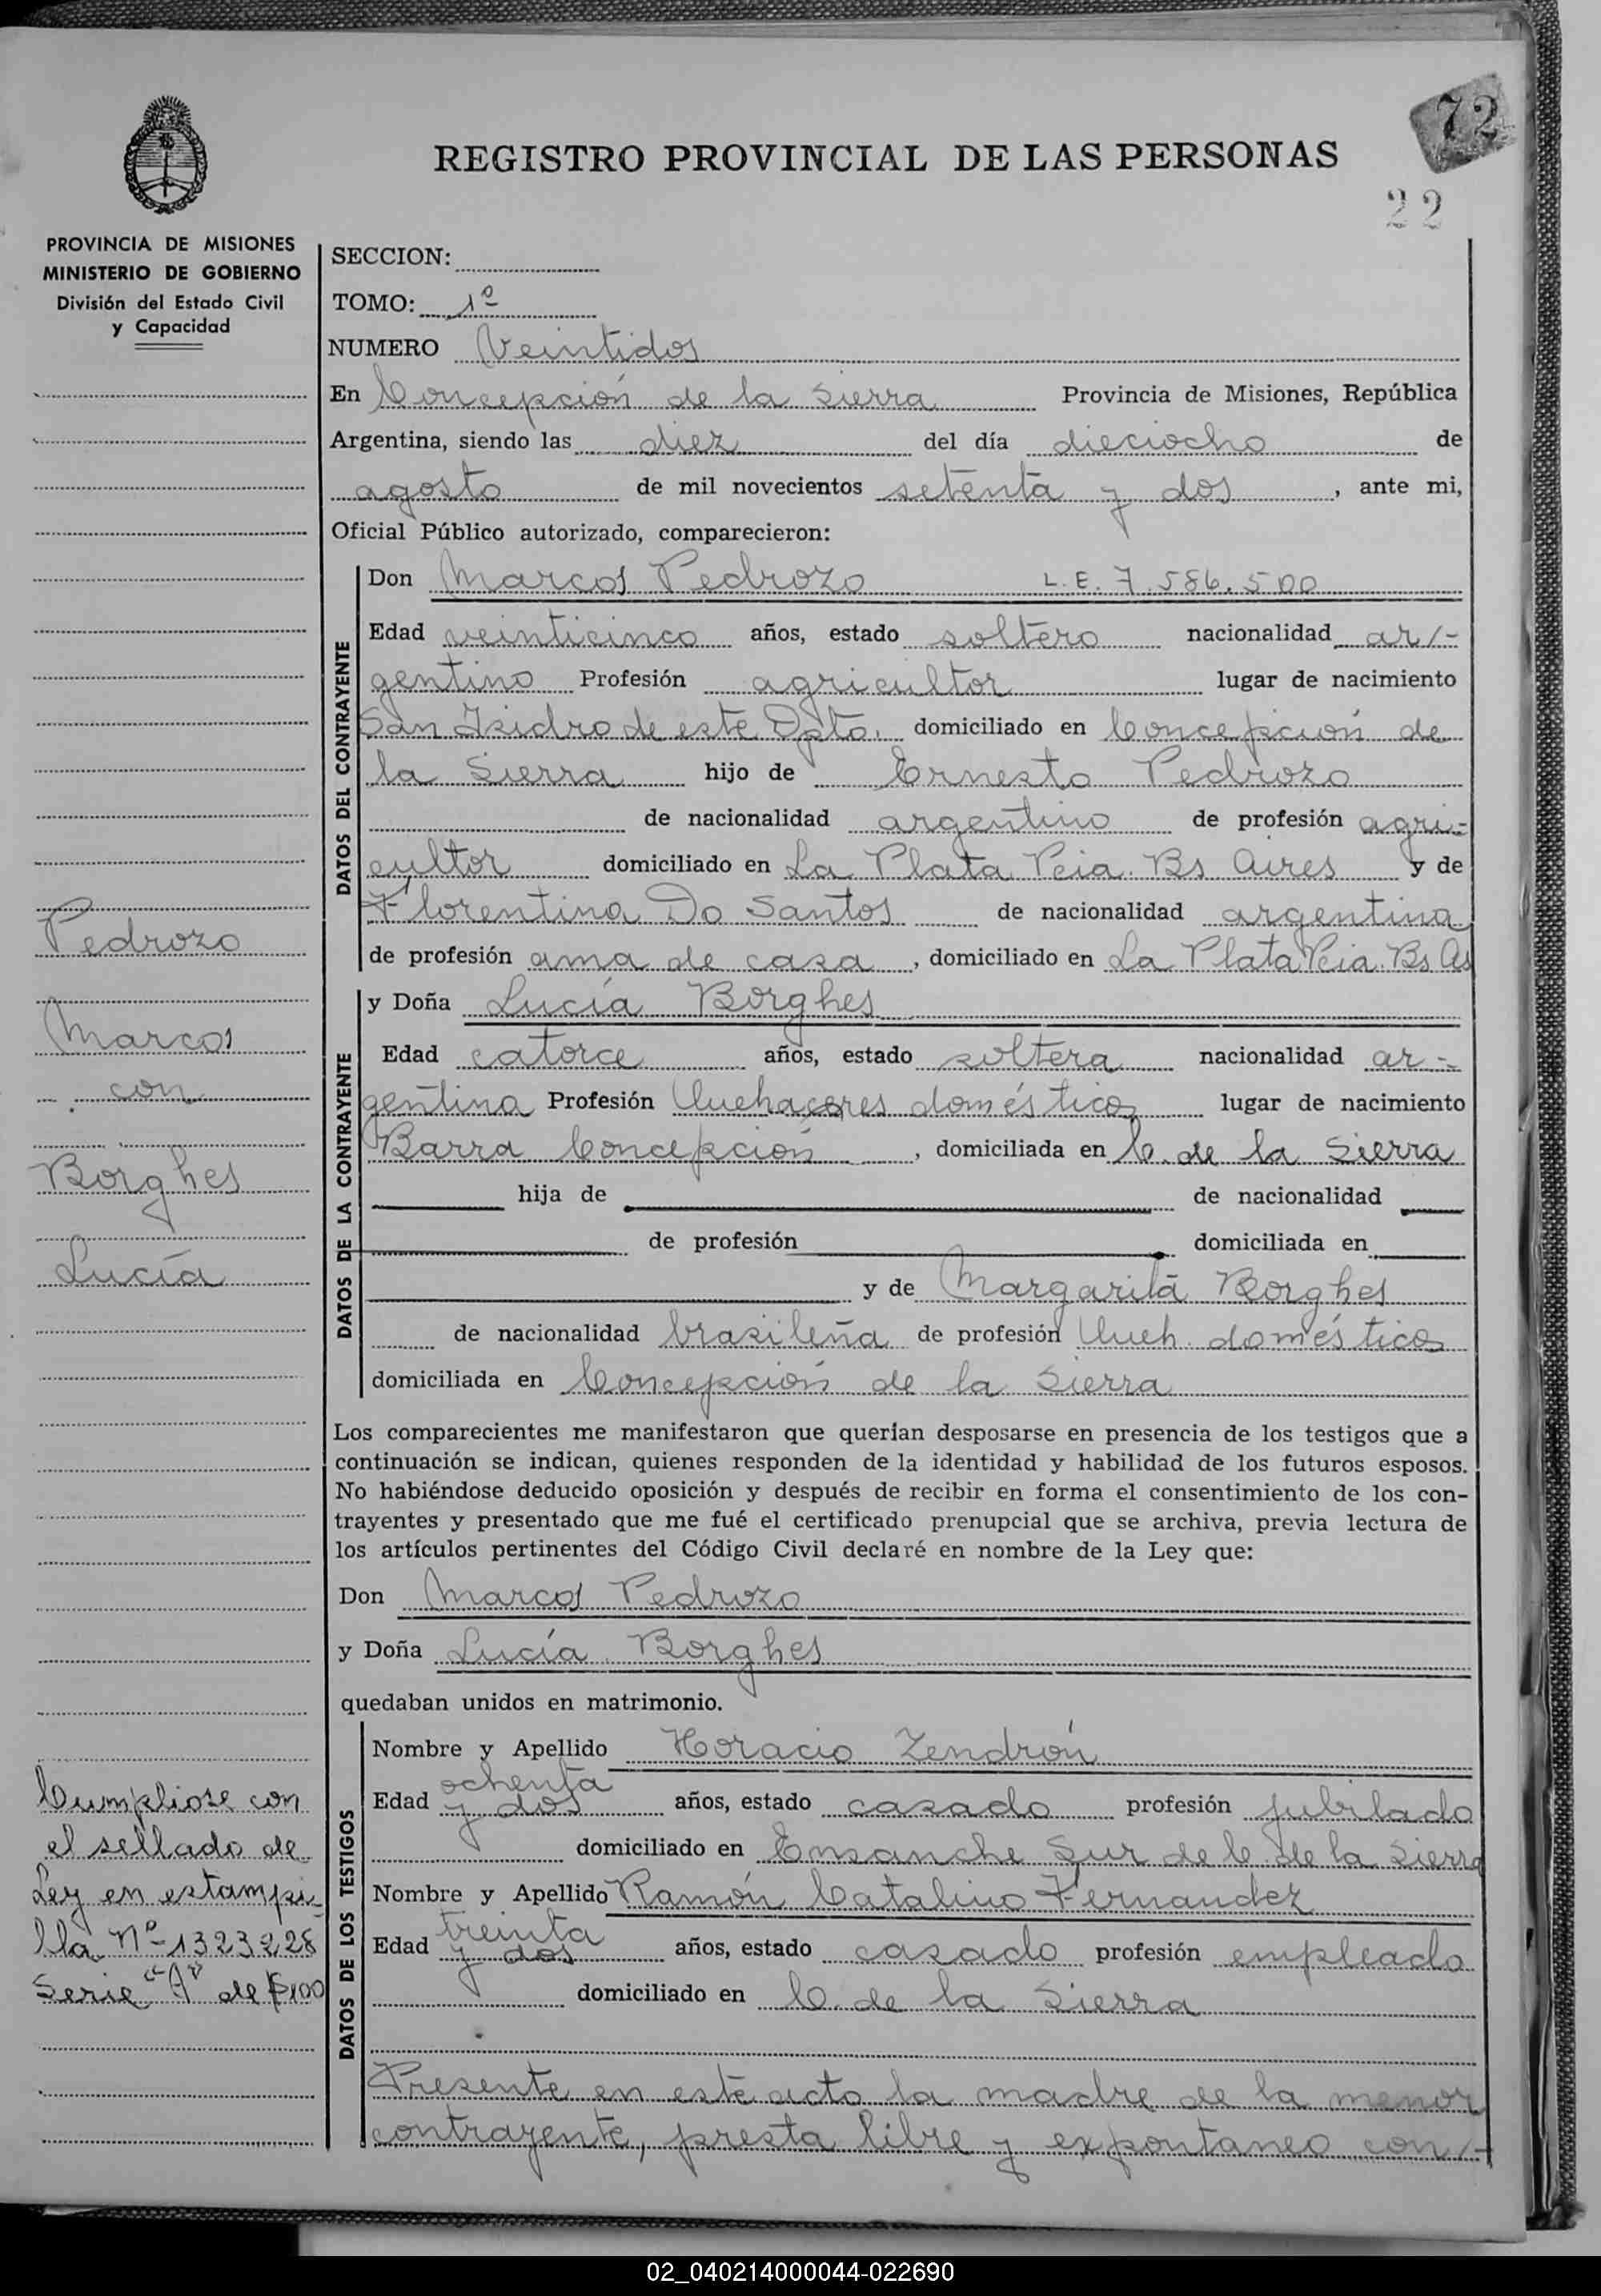 72
REGISTRO PROVINCIAL DE LAS PERSONAS
22
PROVINCIA DE MISIONES
MINISTERIO DE GOBIERNO
División del Estado Civil
y Capacidad
SECCION:
TOMO: 1º
NUMERO Veintidos
En Concepción de la Sierra Provincia de Misiones, República
Argentina, siendo las diez del día dieciocho de
agosto de mil novecientos setenta y dos, ante mi,
Oficial Público autorizado, comparecieron:
DATOS DEL CONTRAYENTE
Don Marcos Pedrozo L.E. 7.586.500
Edad veinticinco años, estado soltero nacionalidad ar/-
gentino Profesión agricultor lugar de nacimiento
San Isidro de este Dpto. domiciliado en Concepción de
la Sierra hijo de Ernesto Pedrozo
de nacionalidad argentino de profesión agri-
cultor domiciliado en La Plata Pcia. Bs Aires y de
Florentina Do Santos de nacionalidad argentina
de profesión ama de casa, domiciliado en La Plata Pcia. Bs As
DATOS DE LA CONTRAYENTE
y Doña Lucía Borghes
Edad catorce años, estado soltera nacionalidad ar-
gentina Profesión Quehaceres domésticos lugar de nacimiento
Barra Concepción, domiciliada en C. de la Sierra
hija de de nacionalidad
de profesión domiciliada en
y de Margarita Borghes
de nacionalidad brasileña de profesión Queh. domésticos
domiciliada en Concepción de la Sierra
Los comparecientes me manifestaron que querían desposarse en presencia de los testigos que a
continuación se indican, quienes responden de la identidad y habilidad de los futuros esposos.
No habiéndose deducido oposición y después de recibir en forma el consentimiento de los con-
trayentes y presentado que me fué el certificado prenupcial que se archiva, previa lectura de
los artículos pertinentes del Código Civil declaré en nombre de la Ley que:
Don Marcos Pedrozo
y Doña Lucía Borghes
quedaban unidos en matrimonio.
DATOS DE LOS TESTIGOS
Nombre y Apellido Horacio Zendrón
Edad ochenta y dos años, estado casado profesión jubilado
domiciliado en Ensanche Sur de C. de la Sierra
Nombre y Apellido Ramón Catalino Fernandez
Edad treinta y dos años, estado casado profesión empleado
domiciliado en C. de la Sierra
Presente en este acto la madre de la menor
contrayente, presta libre y expontaneo con/-
Pedrozo
Marcos
con
Borghes
Lucía
Cumpliose con
el sellado de
Ley en estampi-
lla Nº 1323228
Serie "A" de $100
02_040214000044-022690